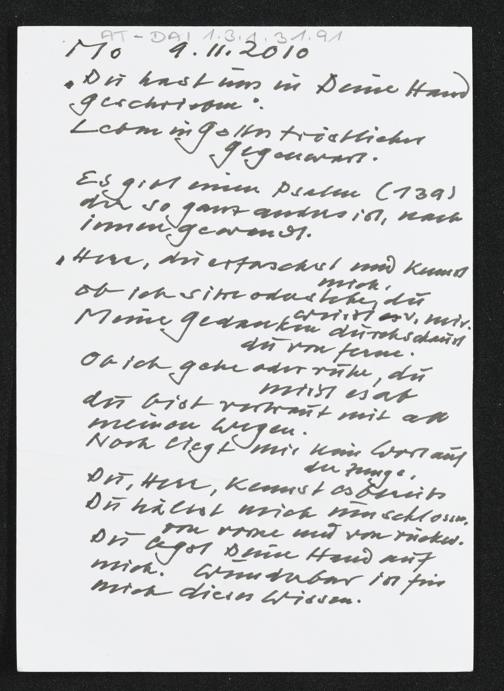 AT-DAI 1.3.1.31.91
Mo 9.11.2010
„Du hast uns in Deine Hand
geschrieben“.
Leben in Gottes tröstlicher
Gegenwart.
Es gibt einen Psalm (139)
der so ganz anders ist, nach
innen gewandt.
„Herr, du erforschest und kennst
mich.
Ob ich sitze oder stehe, du
weisst es v. mir.
Meine Gedanken durchschaust
du von ferne.
Ob ich gehe oder ruhe, du
misst es ab
du bist vertraut mit all
meinen Wegen.
Noch liegt mir kein Wort auf
der Zunge,
Du, Herr, kennst es bereits
Du hältst mich umschlossen,
von vorne und von rückw.
Du legst Deine Hand auf
mich. Wunderbar ist für
mich dieses Wissen.